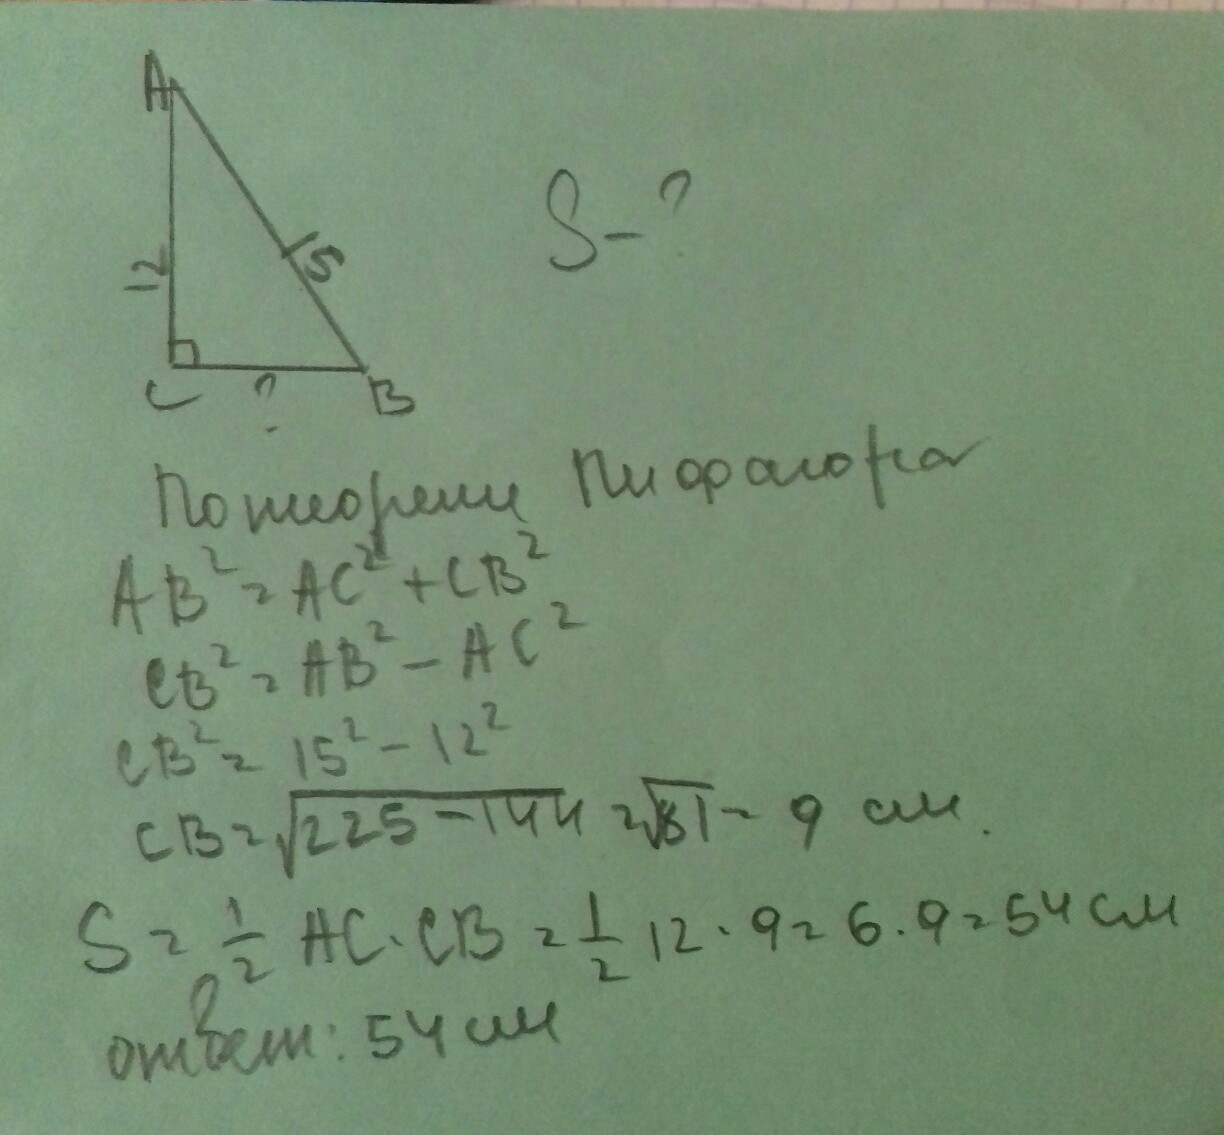 A
S-?
12
15
C ? B
По теореме Пифагора
AB² = AC² + CB²
CB² = AB² - AC²
CB² = 15² - 12²
CB = √225-144 = √81 = 9 см.
S = 1/2 AC · CB = 1/2 12 · 9 = 6 · 9 = 54 см
ответ: 54 см